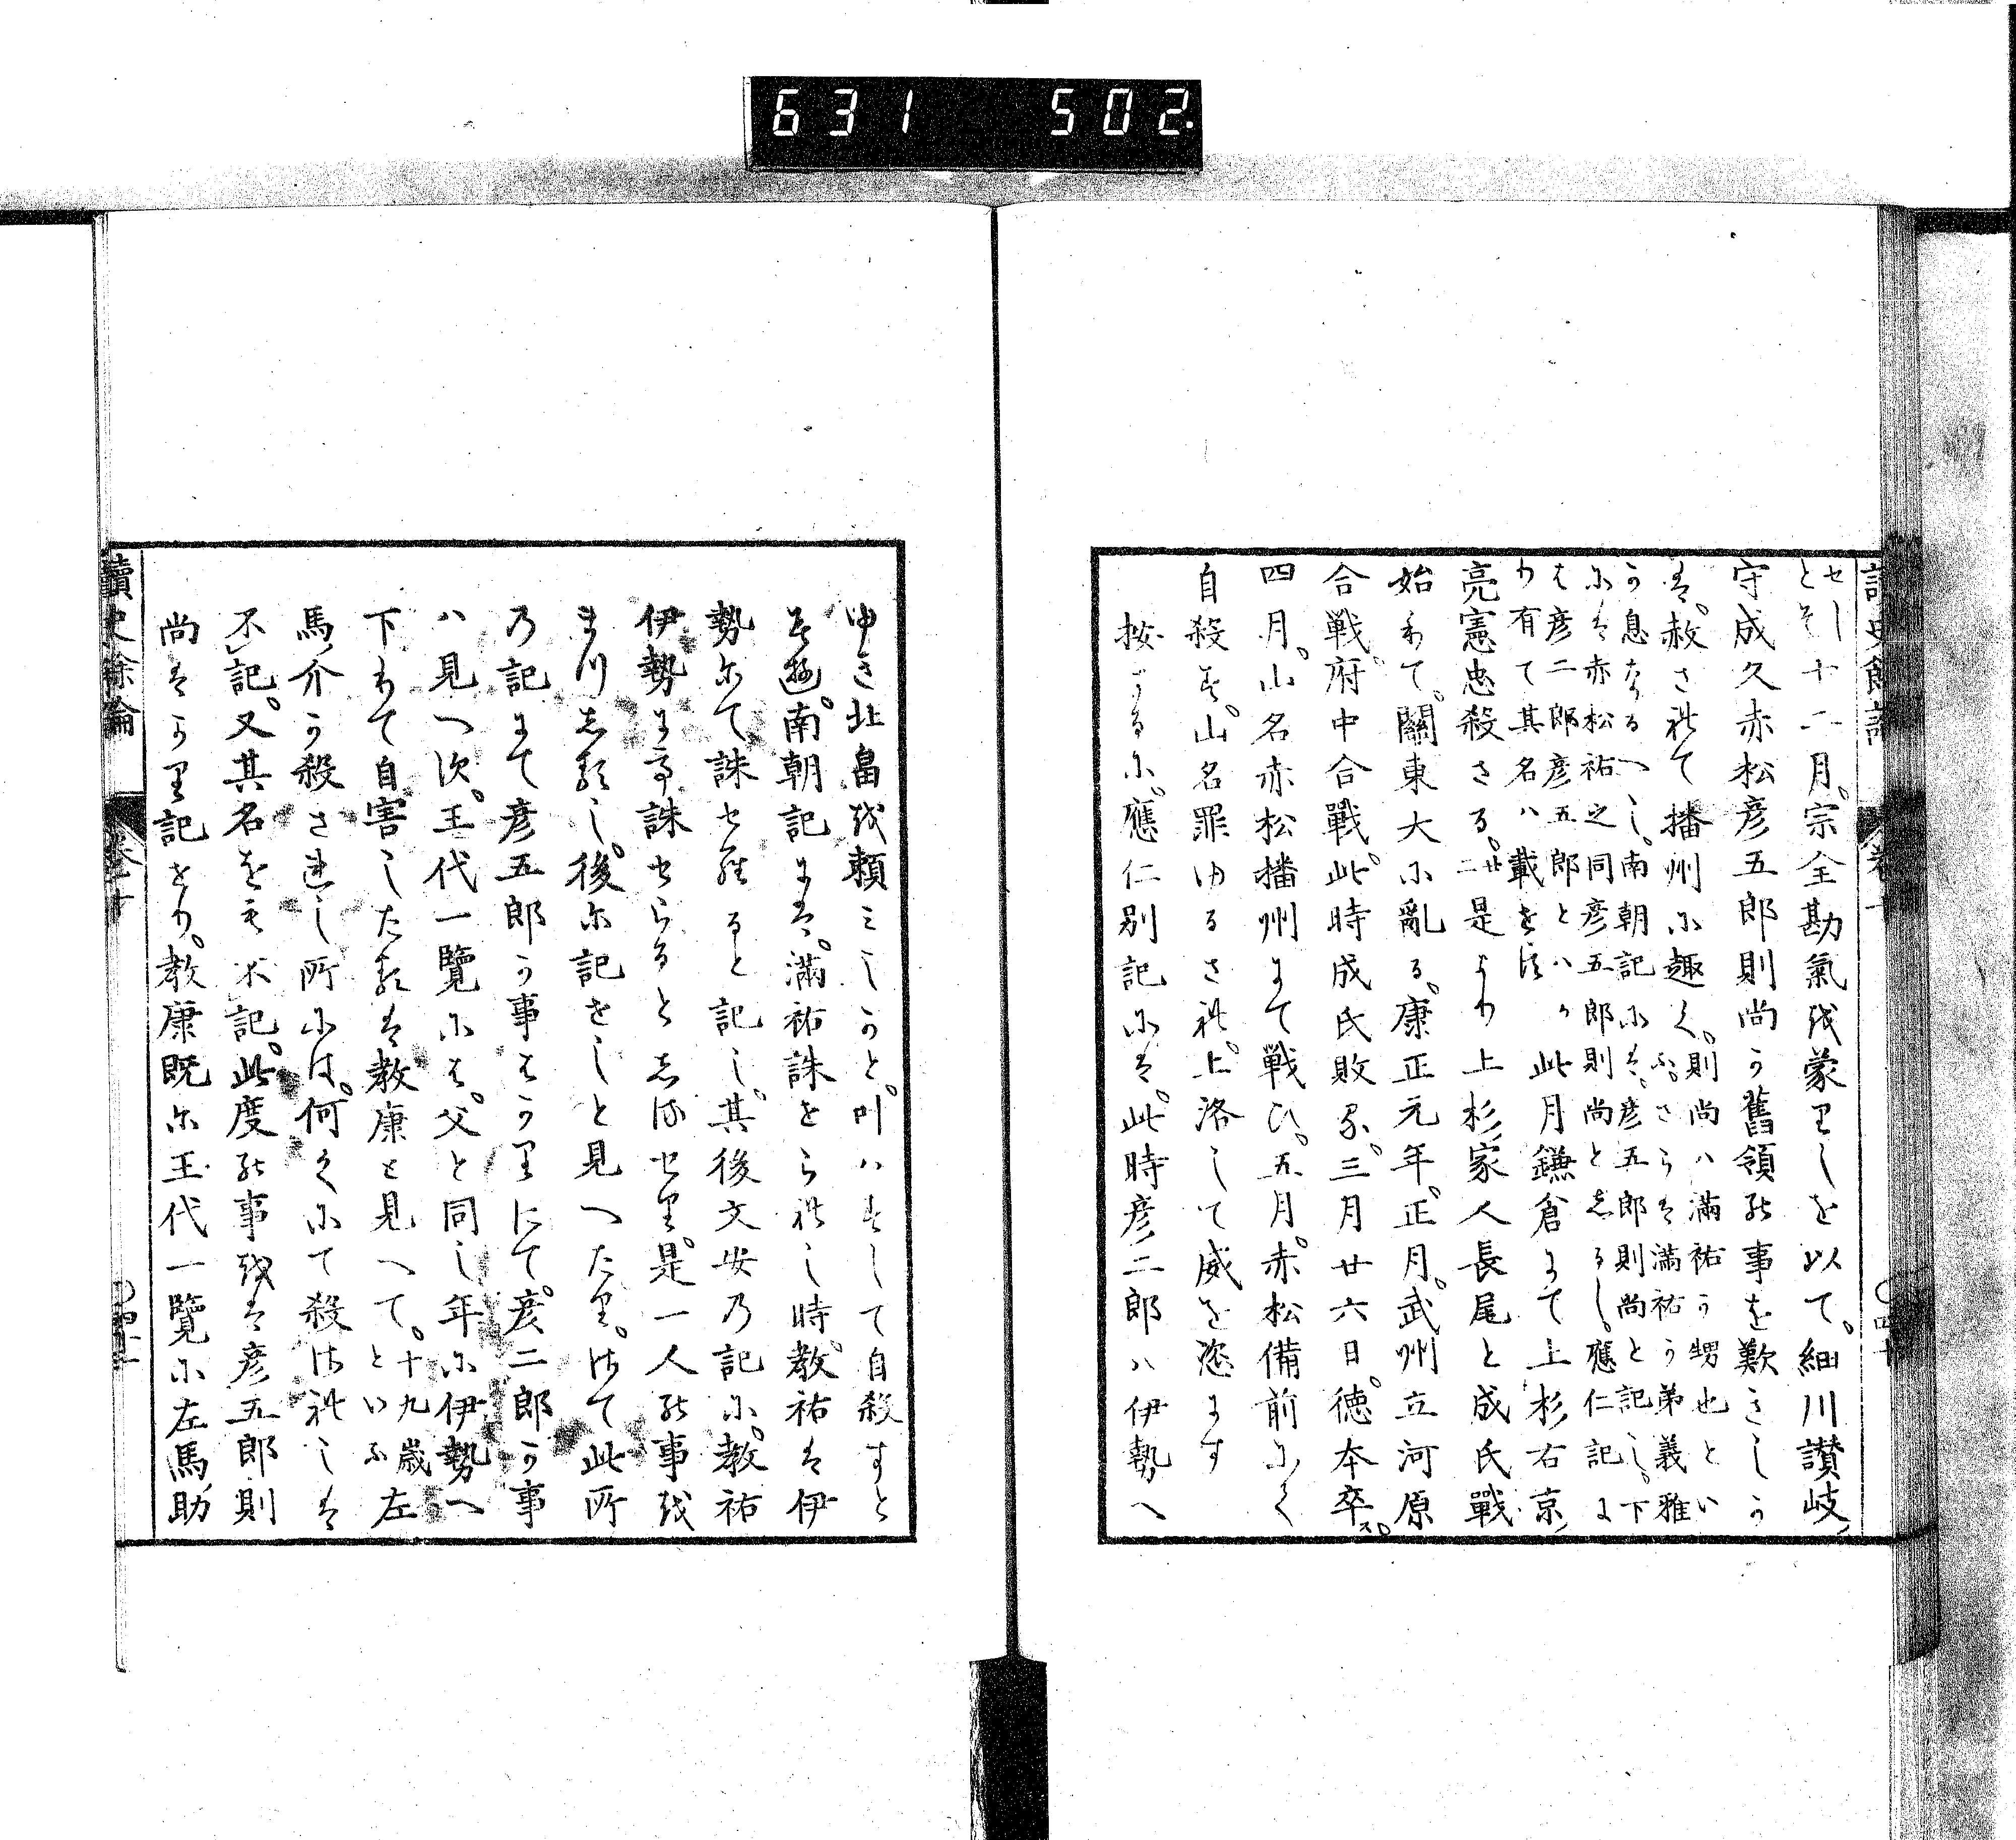 631 502
せし
とぞ十二月。宗全勘氣を蒙りしを以て。細川讃岐
守成久赤松彦五郎則尚か舊領の事を歎きしか
は。赦されて播州に趣く。則尚ハ滿祐か甥也とい
ふ。さらは滿祐か弟義雅
か息なるへし。南朝記には。彦五郎則尚と記し。下
には赤松祐之同彦五郎則尚としるし。應仁記に
は彦二郎彦五郎とハか
り有て其名ハ載せす 此月鎌倉にて上杉右京
亮憲忠殺さる。廿二 是より上杉家人長尾と成氏戰
始りて。關東大に亂る。康正元年。正月。武州立河原
合戰。府中合戰。此時成氏敗る。三月廿六日。徳本卒ス。
四月。山名赤松播州にて戰ひ。五月。赤松備前にて
自殺す。山名罪ゆるされ。上洛して威を恣にす
按するに。應仁別記には。此時彦二郎ハ伊勢へ
ゆき北畠を頼ミしかと。叶ハすして自殺すと
そ。南朝記には。滿祐誅せられし時。教祐は伊
勢にて誅せらると記し。其後文安の記に。教祐
伊勢にて誅せらるとしるせり。是一人の事を
まつしるし。後に記せしと見へたり。さて此所
の記にて彦五郎か事はかりにて。彦二郎か事
ハ見へす。王代一覽には。父と同し年に伊勢へ
下りて自害したるは教康と見へて。十九歳
といふ 左
馬介か殺されし所には。何くにて殺されしは
不記。又其名をも不記。此度の事をは彦五郎則
尚はかり記せり。教康既に王代一覽に左馬助
讀史餘論 卷十